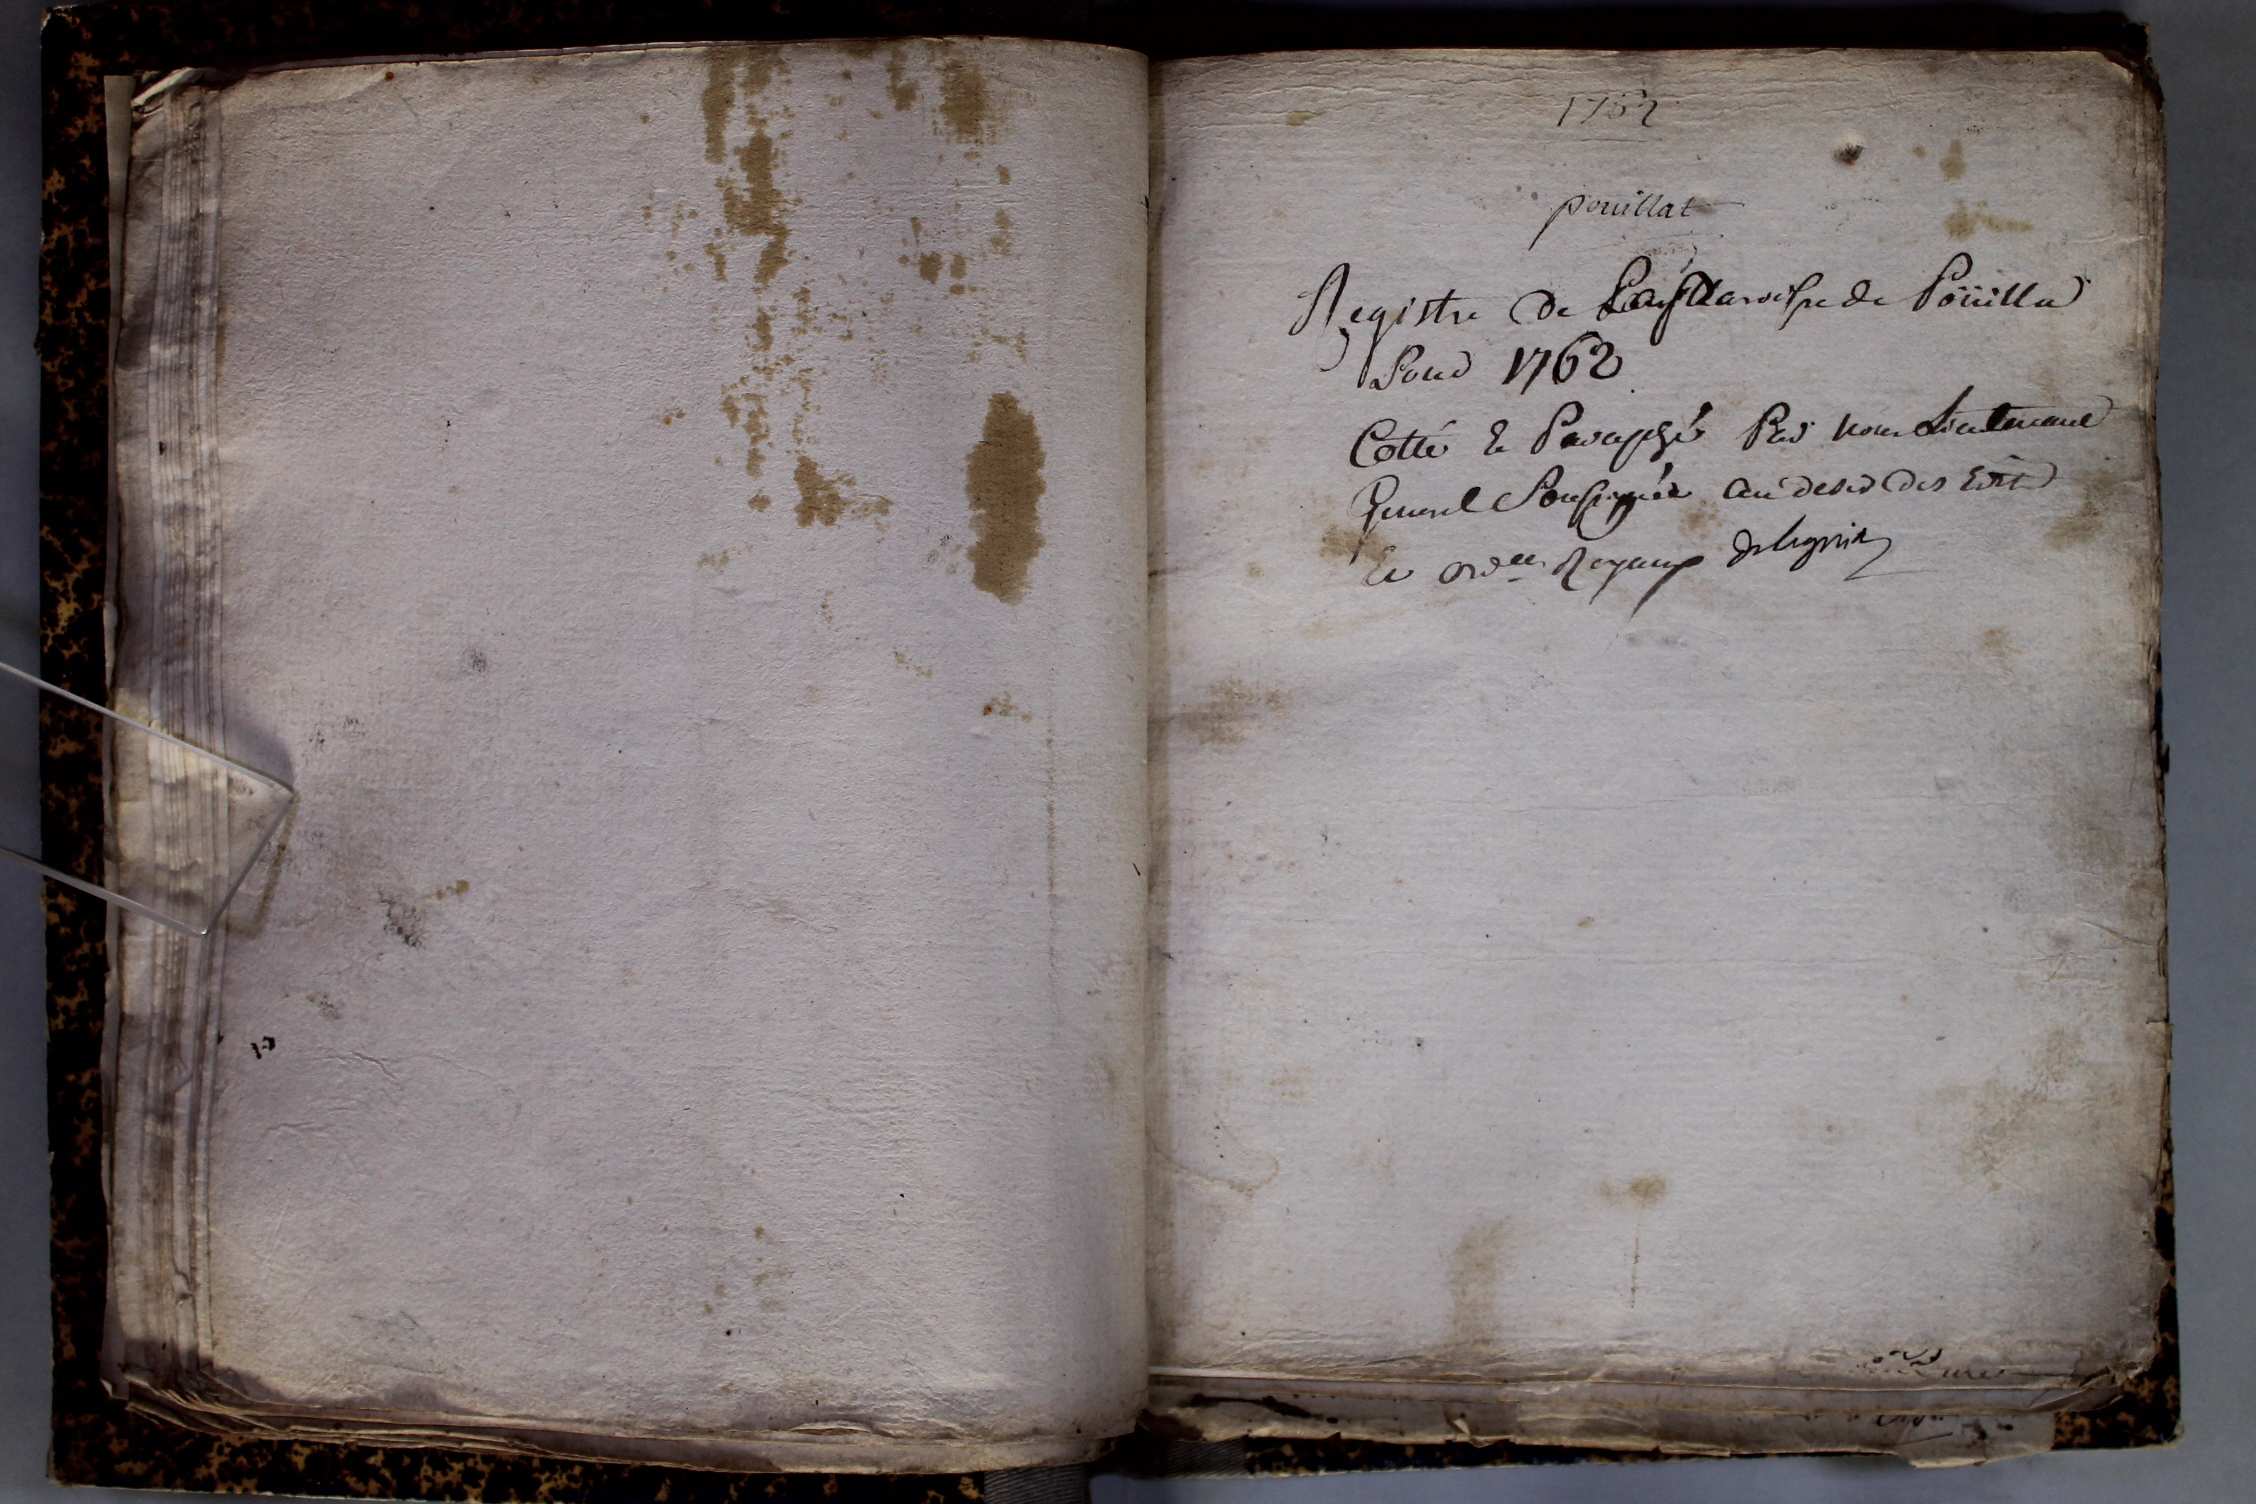 1762
pouillat
Registre de La Paroisse de Poüilla
Pour 1762
Cotté & Paraphé Par nous Lieutenant
General Soussigné au desir des Edits
Et ordces Royaux Delagnia